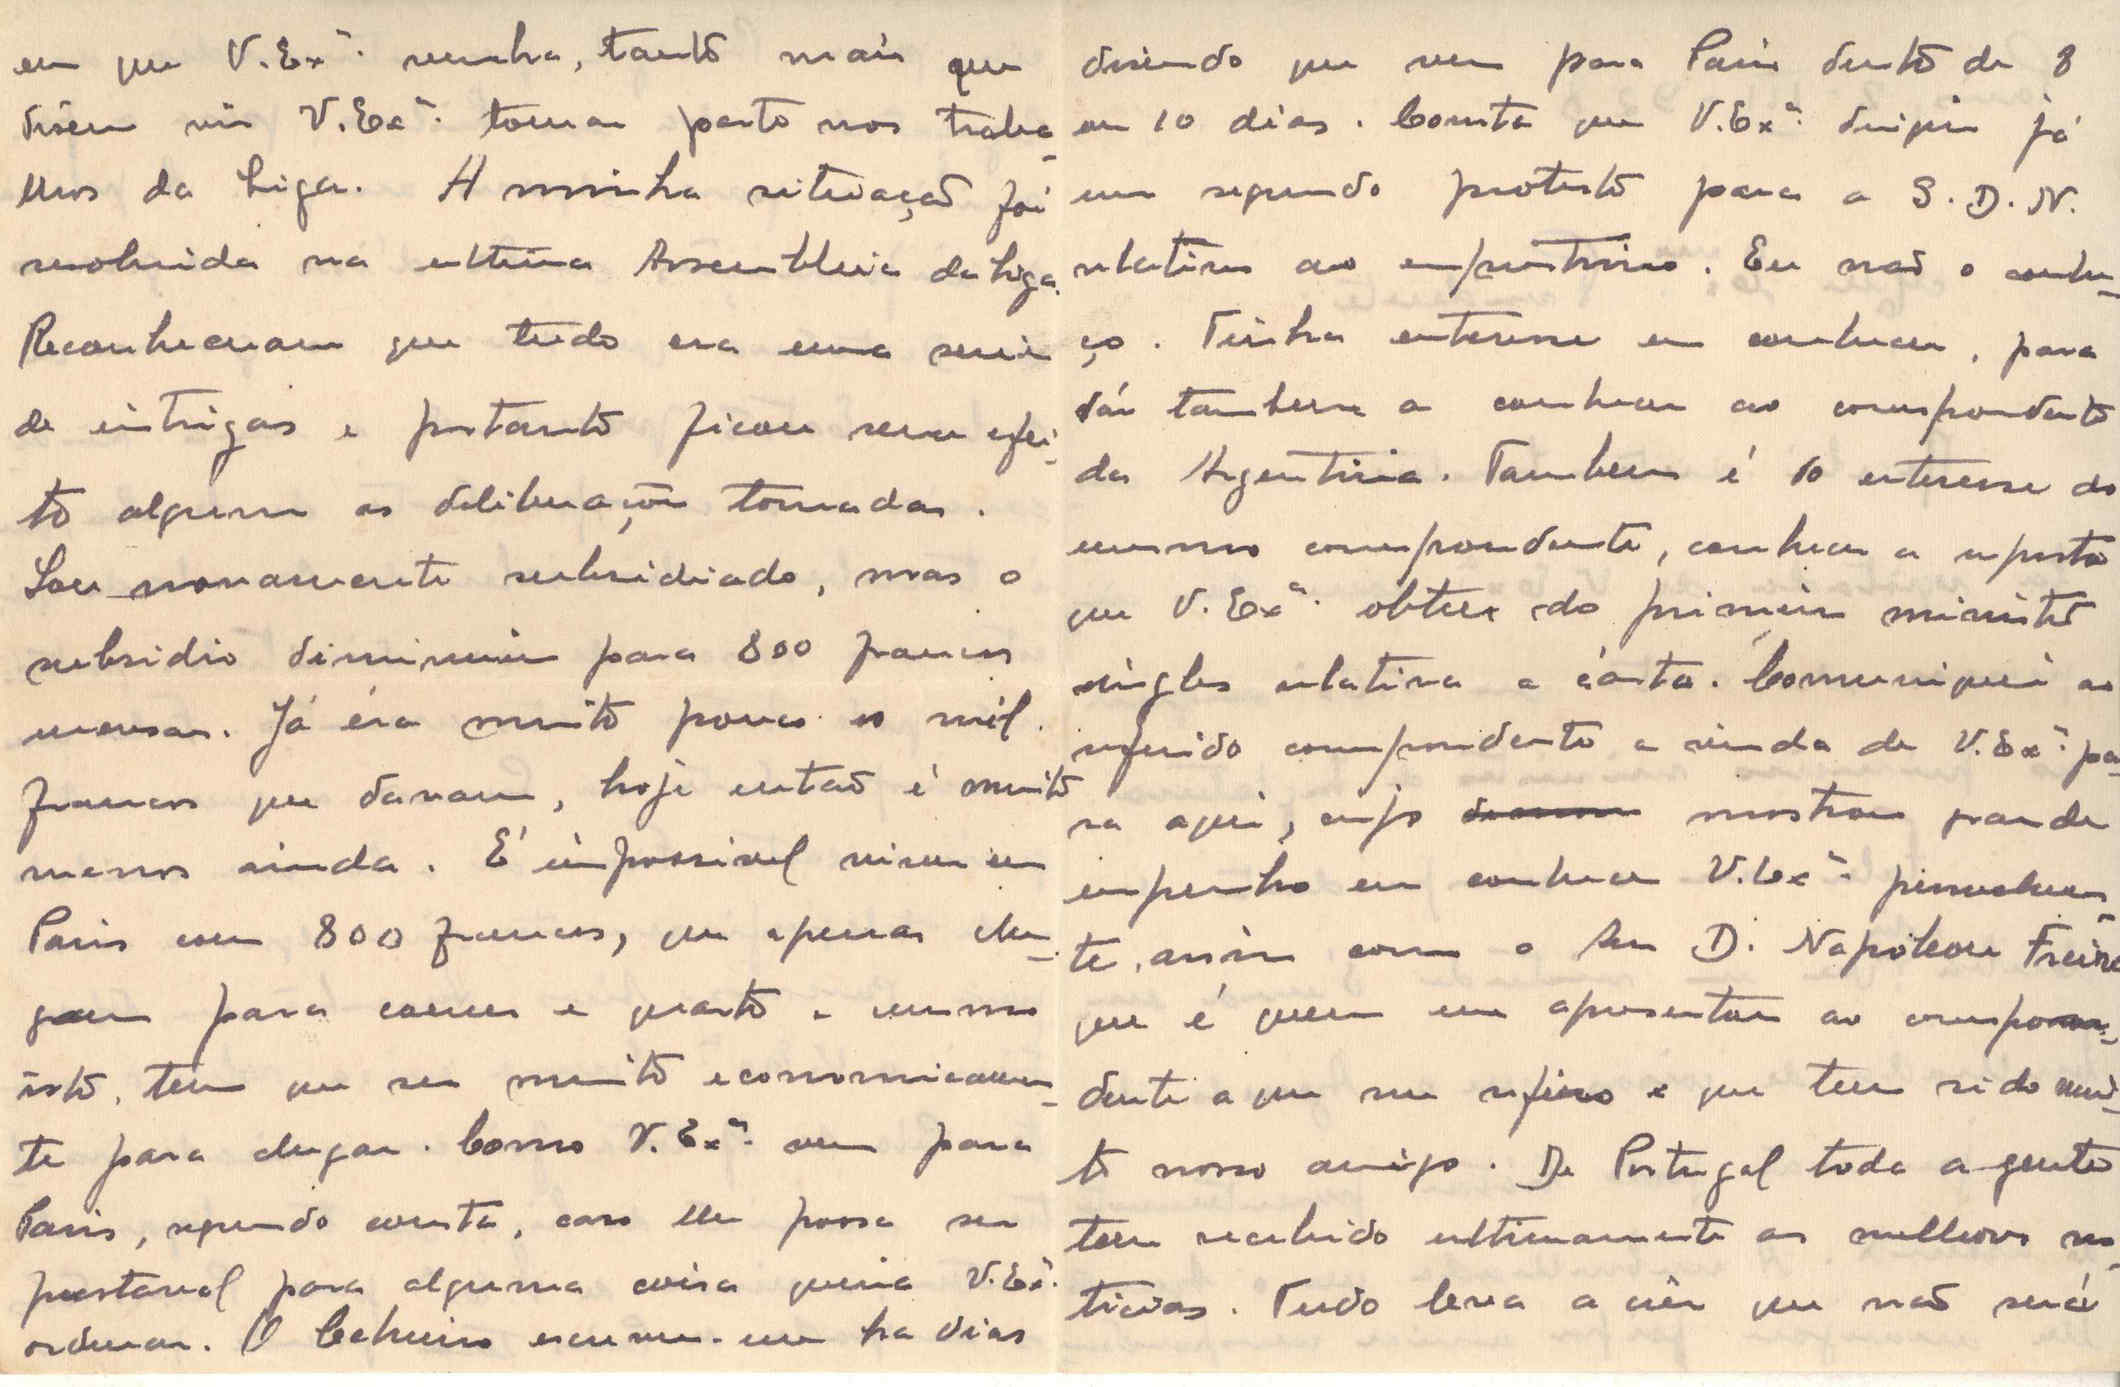 em que V. Exª. venha, tanto mais que
disem vir V. Exª. tomar parte nos traba-
lhos da Liga. A minha situação foi
resolvida na ultima Assembleia da Liga.
Reconheceram que tudo era uma serie
de intrigas e portanto ficou sem efei-
to algum as deliberações tomadas.
Sou novamente subsidiado, mas o
subsidio diminuiu para 800 francos
mensaes. Já éra muito pouco os mil
francos que davam, hoje então é muito
menos ainda. É impossivel viver em
Paris com 800 francos, que apenas che-
gam para comer e quarto e mesmo
isto, tem que ser muito economicamen-
te para chegar. Como V. Exª. vem para
Paris, segundo consta, caso lhe possa ser
prestavel para alguma coisa queira V. Exª.
ordenar. O escreveu-me ha dias
disendo que vem para Paris dentro de 8
ou 10 dias. Consta que V. Exª. dirigiu já
um segundo protesto para a S. D. N.
relativo ao emprestimo. Eu não o conhe-
ço. Tinha enteresse em conhecer, para
dár tambem a conhecer ao correspondente
da Argentina. Tambem é do enteresse do
mesmo correspondente, conhecer a resposta
que V. Exª. obteve do primeiro ministro
inglês relativa a cárta. Comuniquei ao
referido correspondente a vinda de V. Exª. pa-
ra aqui, cujo mostrou grande
empenho em conhecer V. Exª. pessoalmen-
te, assim como o Snr D. Napoleou Freire
que é quem me apresentou ao correspon-
dente a que me refiro e que tem sido mui-
to nosso amigo. De Portugal toda a gente
tem recebido ultimamente as melhores no-
ticias. Tudo leva a crêr que não será